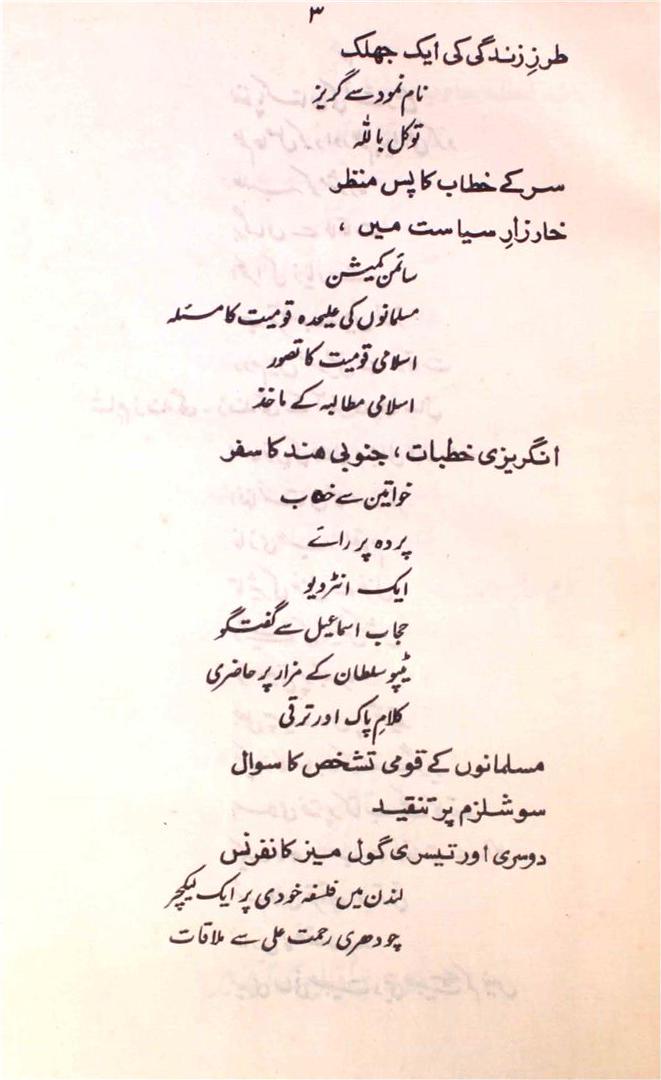 ۳
طرزِ زندگی کی ایک جھلک
نام نمود سے گریز
توکل باللہ
سر کے خطاب کا پس منظر
خارزارِ سیاست میں ،
سائمن کمیشن
مسلمانوں کی علیحدہ قومیت کا مسئلہ
اسلامی قومیت کا تصور
اسلامی مطالبہ کے ماخذ
انگریزی خطبات ، جنوبی ہند کا سفر
خواتین سے خطاب
پردہ پر رائے
ایک انٹرویو
حجاب اسماعیل سے گفتگو
ٹیپو سلطان کے مزار پر حاضری
کلامِ پاک اور ترقی
مسلمانوں کے قومی تشخص کا سوال
سوشلزم پر تنقید
دوسری اور تیسری گول میز کانفرنس
لندن میں فلسفہ خودی پر ایک لیکچر
چودھری رحمت علی سے ملاقات